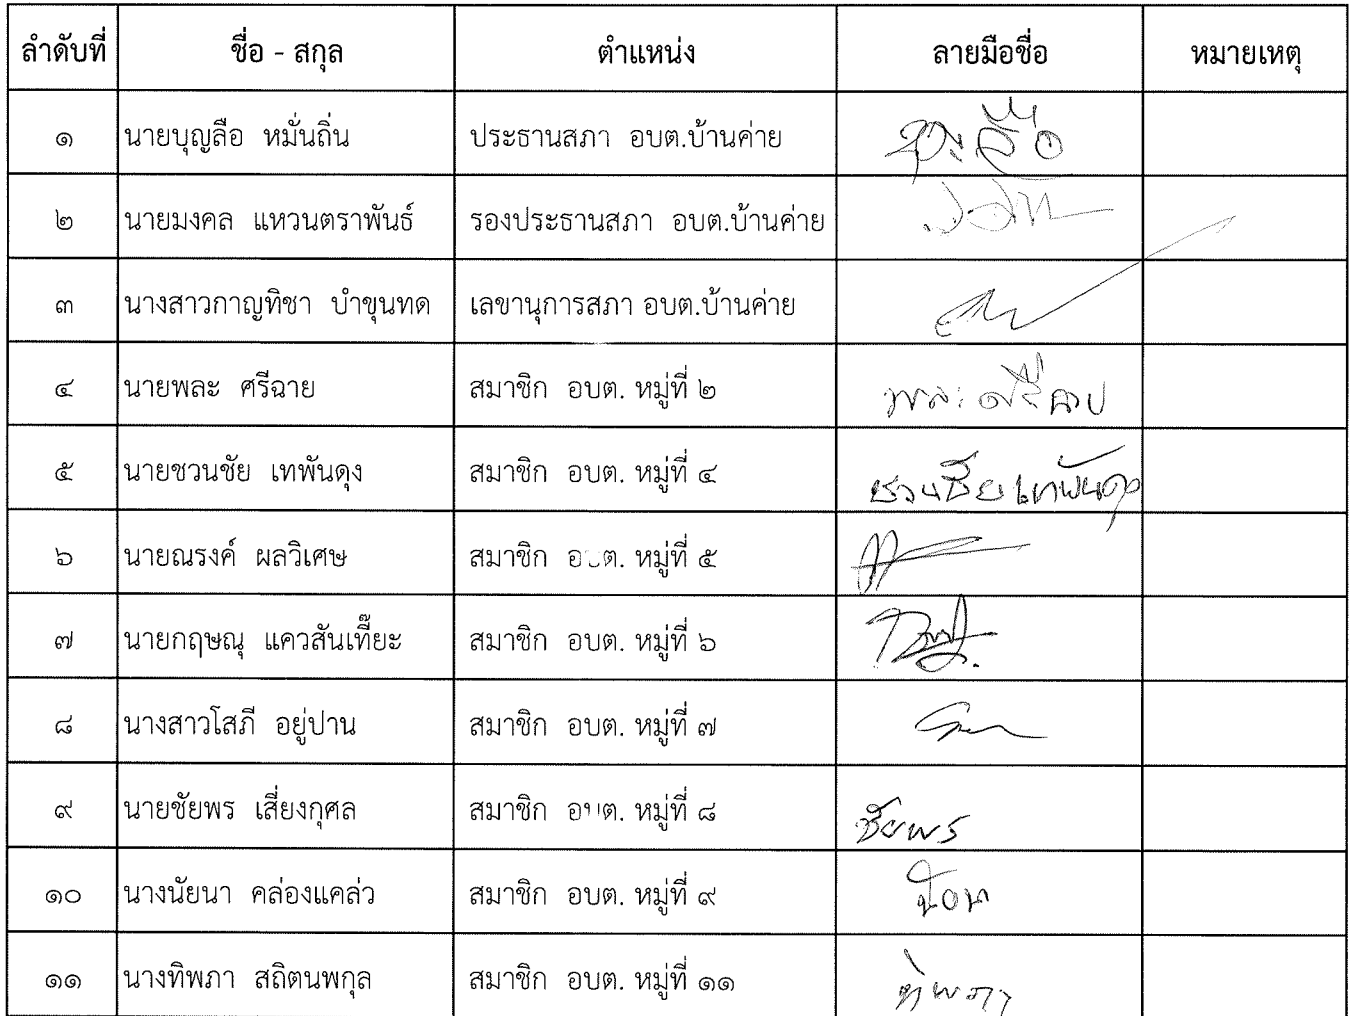 ลำดับที่ ชื่อ - สกุล ตำแหน่ง ลายมือชื่อ หมายเหตุ
๑ นายบุญลือ หมั่นถิ่น ประธานสภา อบต.บ้านค่าย
๒ นายมงคล แหวนตราพันธ์ รองประธานสภา อบต.บ้านค่าย
๓ นางสาวกาญทิชา บำขุนทด เลขานุการสภา อบต.บ้านค่าย
๔ นายพละ ศรีฉาย สมาชิก อบต. หมู่ที่ ๒
๕ นายชวนชัย เทพันดุง สมาชิก อบต. หมู่ที่ ๔ ชวนชัย เทพันดุง
๖ นายณรงค์ ผลวิเศษ สมาชิก อบต. หมู่ที่ ๕
๗ นายกฤษณุ แควสันเที๊ยะ สมาชิก อบต. หมู่ที่ ๖
๘ นางสาวโสภี อยู่ปาน สมาชิก อบต. หมู่ที่ ๗
๙ นายชัยพร เสี่ยงกุศล สมาชิก อบต. หมู่ที่ ๘ ชัยพร
๑๐ นางนัยนา คล่องแคล่ว สมาชิก อบต. หมู่ที่ ๙
๑๑ นางทิพภา สถิตนพกุล สมาชิก อบต. หมู่ที่ ๑๑ ทิพภา